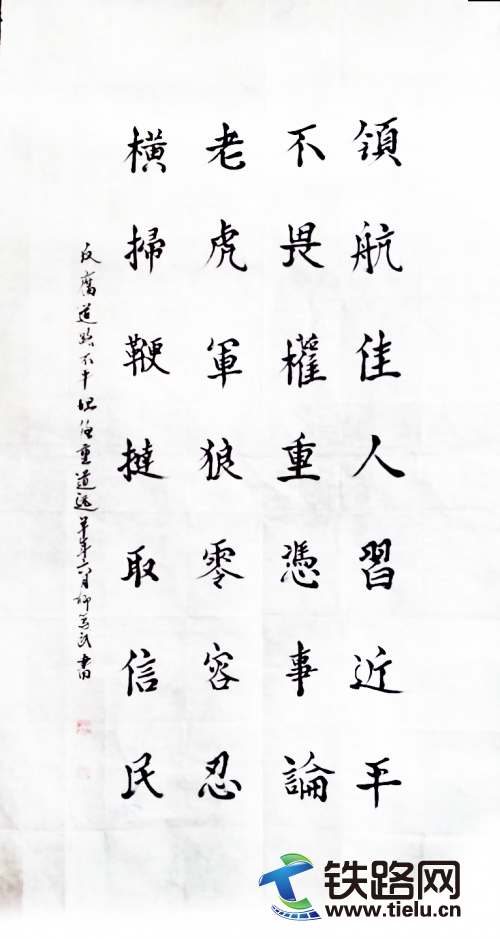 領航佳人習近平
不畏權重憑事論
老虎軍狼零容忍
橫掃鞭撻取信民
反腐道路不平坦任重道远羊年六月柳
書
铁路网
www.tielu.cn